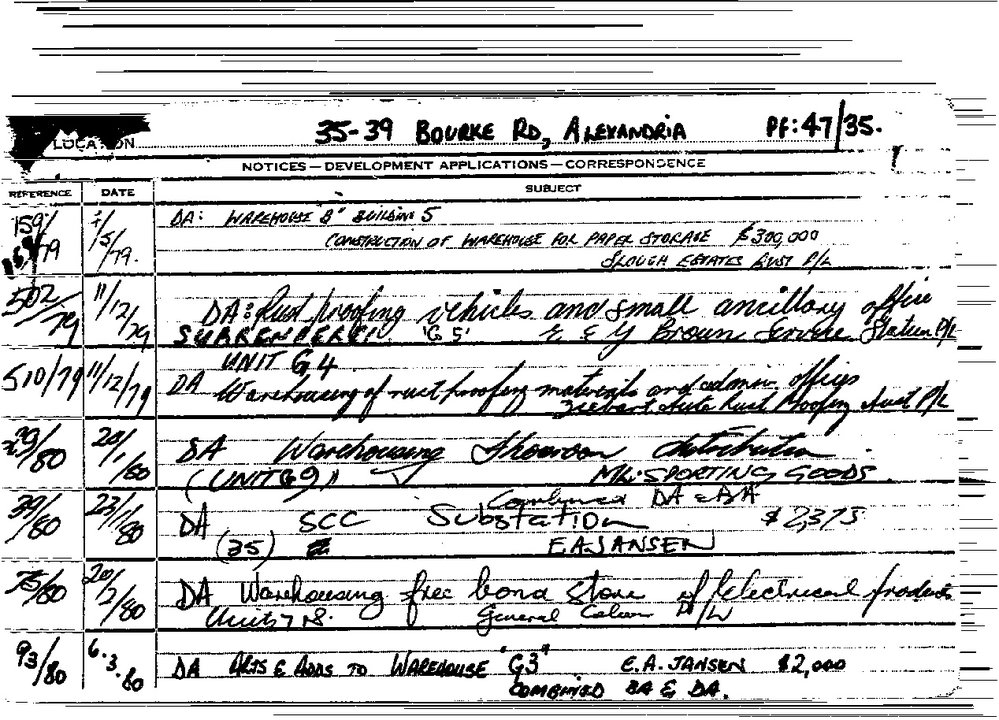 LOCATION 35-39 BOURKE RD, ALEXANDRIA PF: 47/35.
NOTICES — DEVELOPMENT APPLICATIONS — CORRESPONDENCE
REFERENCE DATE SUBJECT
159/79 /5/79. DA: WAREHOUSE B" BUILDING 5
CONSTRUCTION OF WAREHOUSE FOR PAPER STORAGE $300,000
SLOUGH ESTATES AUST P/L
502/79 11/12/79 DA: Rust proofing vehicles and small ancillary office
SURRENDERED 'G5' Brown Service Station P/L
UNIT G4
510/79 11/12/79 DA Warehousing of rust proofing materials and admin. offices
Ziebart Auto Rust Proofing Aust P/L
29/80 20/1/80 DA Warehousing Showroom distribution
(UNIT G9) SPORTING GOODS
Combined DA & BA
39/80 23/1/80 DA SCC Substation $2,375
(35) E.A. JANSEN
75/80 20/2/80 DA Warehousing free bond store of electrical products
Units 7 & 8. General P/L
93/80 6.3.80 DA ALTS & ADDS TO WAREHOUSE "G3" E.A. JANSEN $2,000
COMBINED BA & DA.